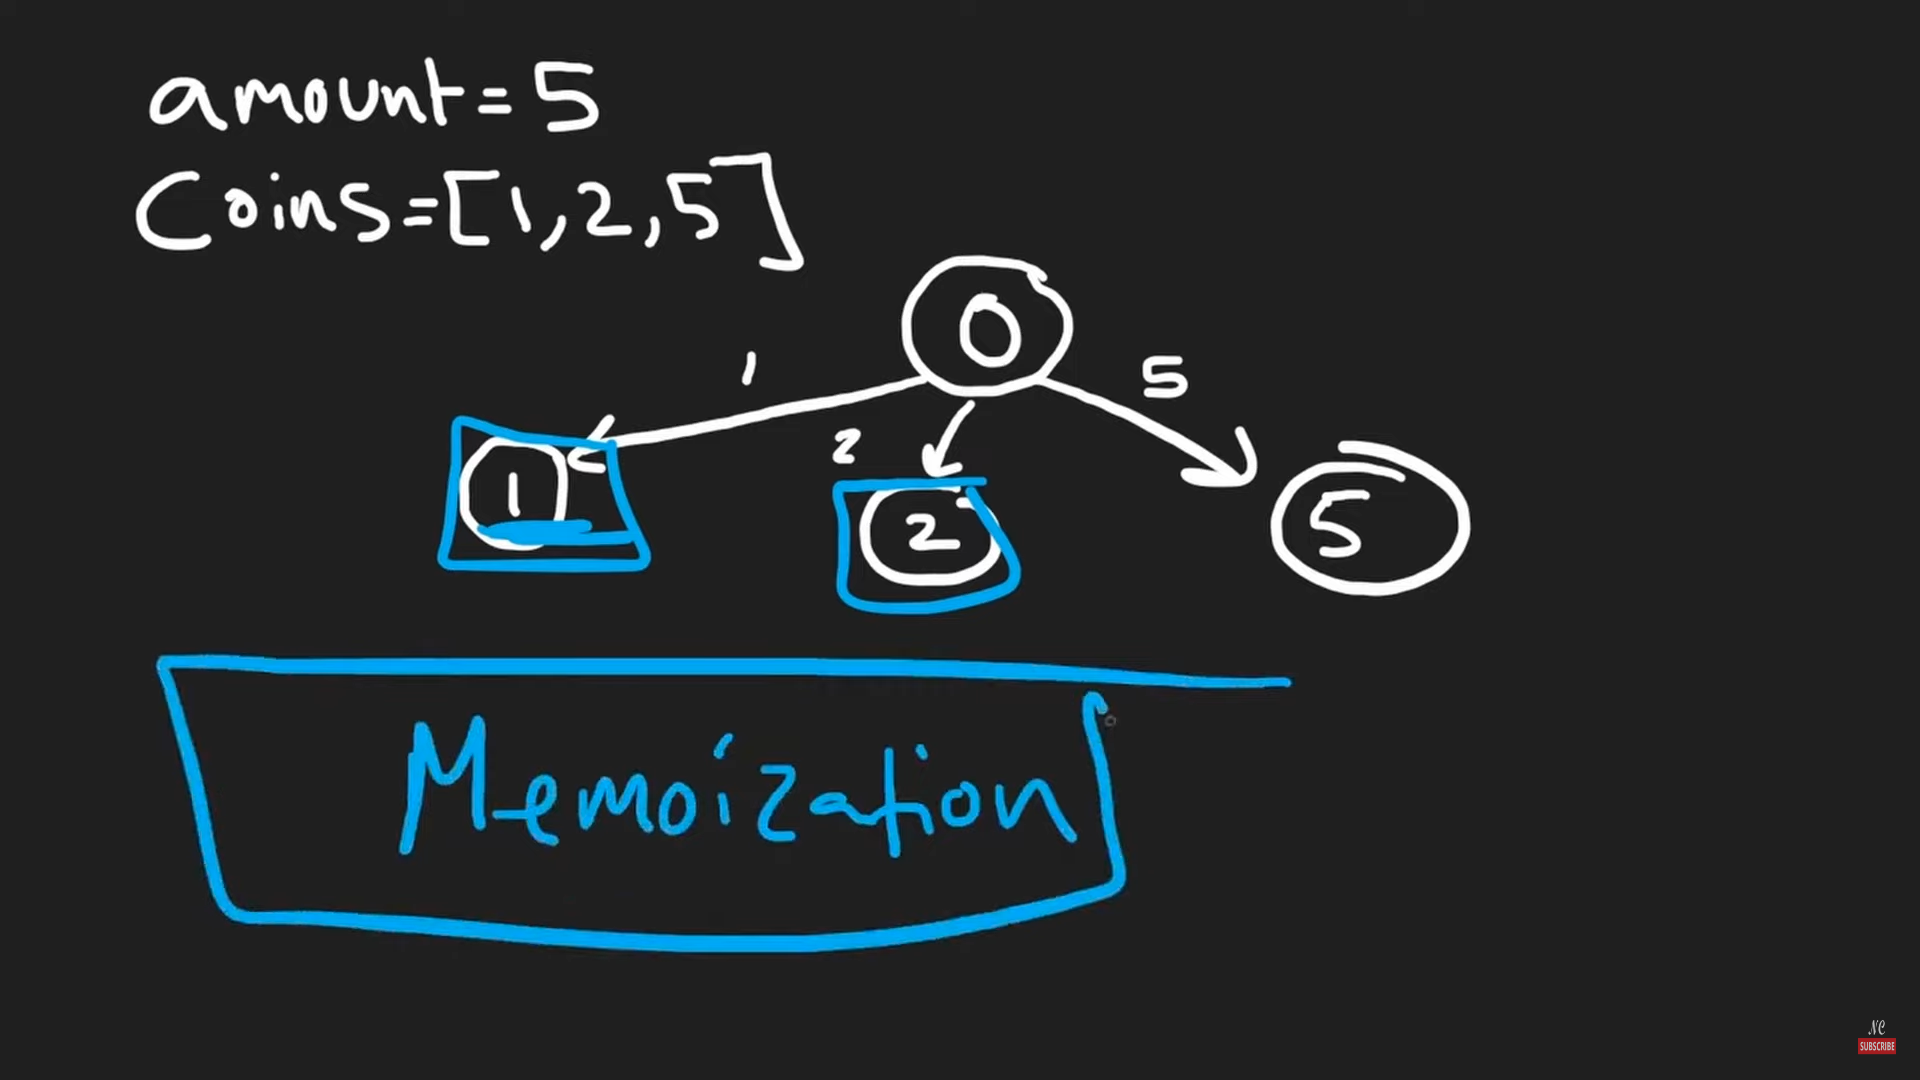 amount=5
Coins=[1,2,5]
0
1
5
2
1
2
5
Memoization
NC
SUBSCRIBE